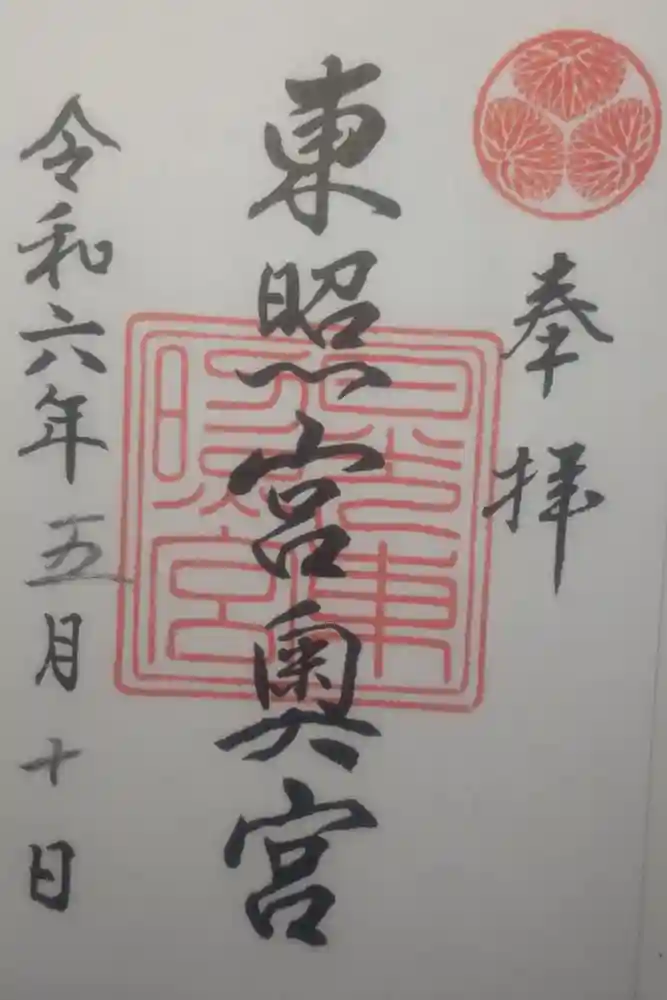 奉拝
東照宮奥宮
令和六年五月十日